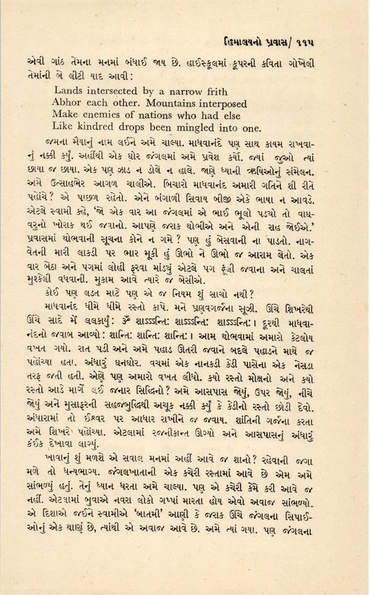 હિમાલયનો પ્રવાસ/ ૧૧૫
એવી ગાંઠ તેમના મનમાં બંધાઈ જાય છે. હાઈસ્કૂલમાં કૂપરની કવિતા ગોખેલી
તેમાંની બે લીટી યાદ આવી:
Lands intersected by a narrow frith
Abhor each other. Mountains interposed
Make enemies of nations who had else
Like kindred drops been mingled into one.
જમના મૈયાનું નામ લઈને અમે ચાલ્યા. માધવાનંદે પણ સાથ કાયમ રાખવા-
નું નક્કી કર્યું. અહીંથી એક ઘોર જંગલમાં અમે પ્રવેશ કર્યો. જ્યાં જુઓ ત્યાં
છાયા જ છાયા. એક પણ ઝાડ ન ડોલે ન હાલે. જાણે ધ્યાની ઋષિઓનું સંમેલન.
અમે ઉત્સાહભેર આગળ ચાલીએ. બિચારો માધવાનંદ અમારી ગતિને શી રીતે
પહોંચે? એ પાછળ રહેતો. એને બંગાળી સિવાય બીજી એકે ભાષા ન આવડે.
એટલે સ્વામી કહે, 'જો એક વાર આ જંગલમાં એ ભાઈ ભૂલો પડ્યો તો વાઘ-
વરુનો ખોરાક થઈ જવાનો. આપણે જરાક થોભીએ અને એની રાહ જોઈએ.'
પ્રવાસમાં થોભવાની સૂચના કોને ન ગમે? પણ હું બેસવાની ના પાડતો. નાગ-
વેતની મારી લાકડી પર ભાર મૂકી હું ઊભો ને ઊભો જ આરામ લેતો. એક
વાર બેઠા અને પગમાં લોહી ફરવા માંડ્યું એટલે પગ ફૂલી જવાના અને ચાલતાં
મુશ્કેલી વધવાની. મુકામ આવે ત્યારે જ બેસીએ.
કોઈ પણ લડત માટે પણ એ જ નિયમ શું સાચો નથી?
માધવાનંદ ધીમે ધીમે રસ્તો કાપે. મને પ્રણવગર્જના સૂઝી. ઊંચે શિખરેથી
ઊંચે સાદે મેં લલકાર્યું: ૐ શાઽઽઽન્તિ: શાઽઽઽન્તિ: શાઽઽઽન્તિ:। દૂરથી માધવા-
નંદનો જવાબ આવ્યો: શાન્તિ: શાન્તિ: શાન્તિ:। આમ થોભવામાં અમારો કેટલોય
વખત ગયો. રાત પડી અને અમે પહાડ ઊતરી જવાને બદલે પહાડને માથે જ
પહોંચ્યા હતા. અંધારું ઘનઘોર. વચમાં એક નાનકડી કેડી પાસેના એક નેસડા
તરફ જતી હતી. એણે પણ અમારો વખત લીધો. કયો રસ્તો મોક્ષનો અને કયો
રસ્તો આડે માર્ગે લઈ જનાર સિદ્ધિનો? અમે આસપાસ જોયું, ઉપર જોયું, નીચે
જોયું અને મુસાફરની સહજબુદ્ધિથી અચૂક નક્કી કર્યું કે કેડીનો રસ્તો છોડી દેવો.
અંધારામાં તો ઈશ્વર પર આધાર રાખીને જ જવાય. શાંતિની ગર્જના કરતા
અમે શિખરે પહોંચ્યા. એટલામાં રજનીકાન્ત ઊગ્યો અને આસપાસનું અંધારું
કંઈક દેખાવા લાગ્યું.
ખાવાનું શું મળશે એ સવાલ મનમાં અહીં આવે જ શાનો? રહેવાની જગા
મળે તો ધન્યભાગ્ય. જંગલખાતાની એક કચેરી રસ્તામાં આવે છે એમ અમે
સાંભળ્યું હતું. તેનું ધ્યાન ધરતા અમે ચાલ્યા. પણ એ કચેરી કેમે કરી આવે જ
નહીં. એટલામાં બુવાએ નવરા લોકો ગપ્પાં મારતા હોય એવો અવાજ સાંભળ્યો.
એ દિશાએ જઈને સ્વામીએ 'બાતમી' આણી કે જરાક ઊંચે જંગલના સિપાઈ-
ઓનું એક થાણું છે, ત્યાંથી એ અવાજ આવે છે. અમે ત્યાં ગયા. પણ જંગલના